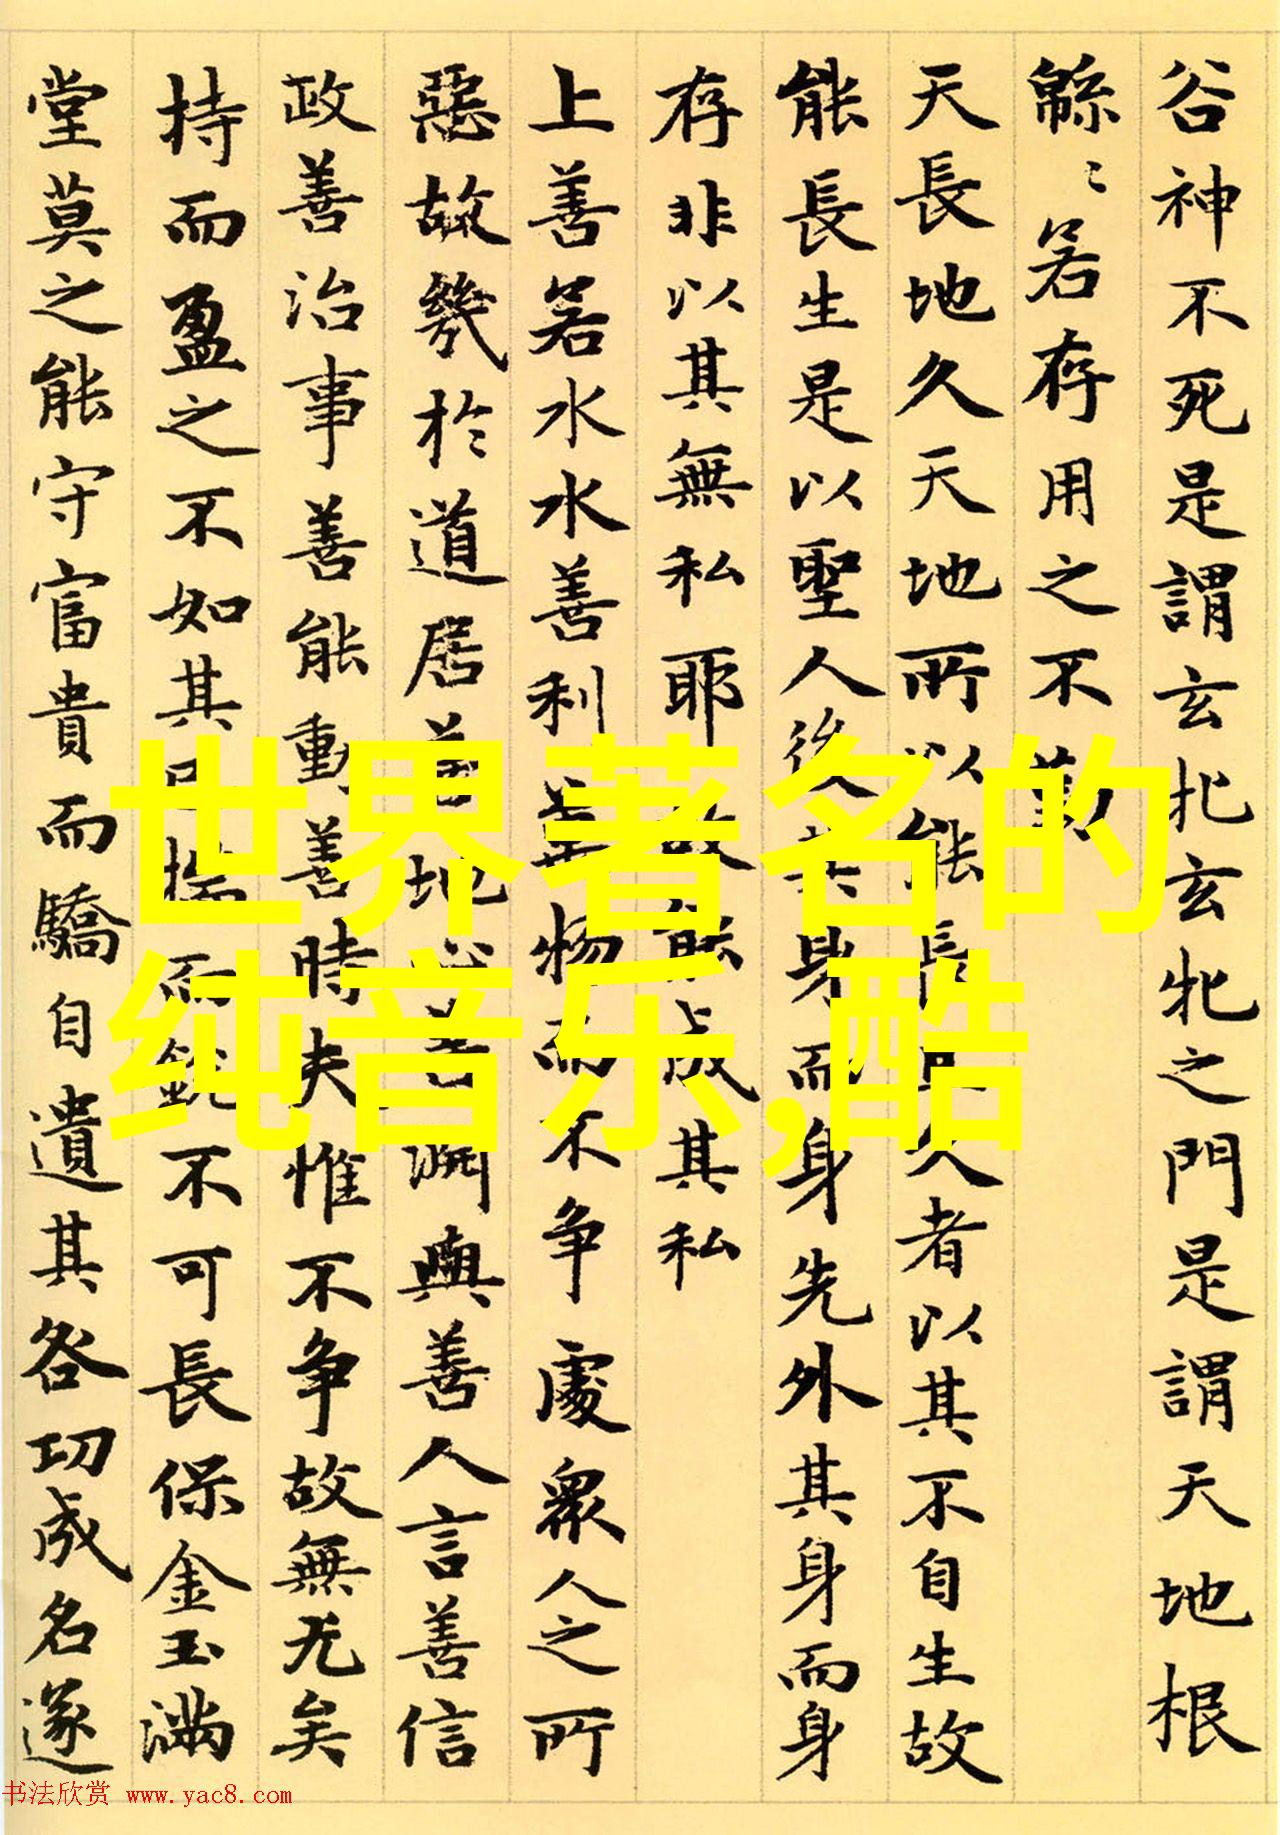 谷神不死是謂玄牝玄牝之門是謂天地根
緜〻若存用之不勤
天長地久天地所以能長且久者以其不自生故
能長生是以聖人後其身而身先外其身而身
存非以其無私耶故能成其私
上善若水水善利萬物而不争處衆人之所
惡故幾於道居善地心善渊與善人言善信
政善治事善能動善時夫惟不争故無尤矣
持而盈之不如其已揣而銳不可長保金玉滿
堂莫之能守富貴而驕自遺其咎功成名遂
世界著名的
纯音乐,酷
书法欣赏 www.yac8.com